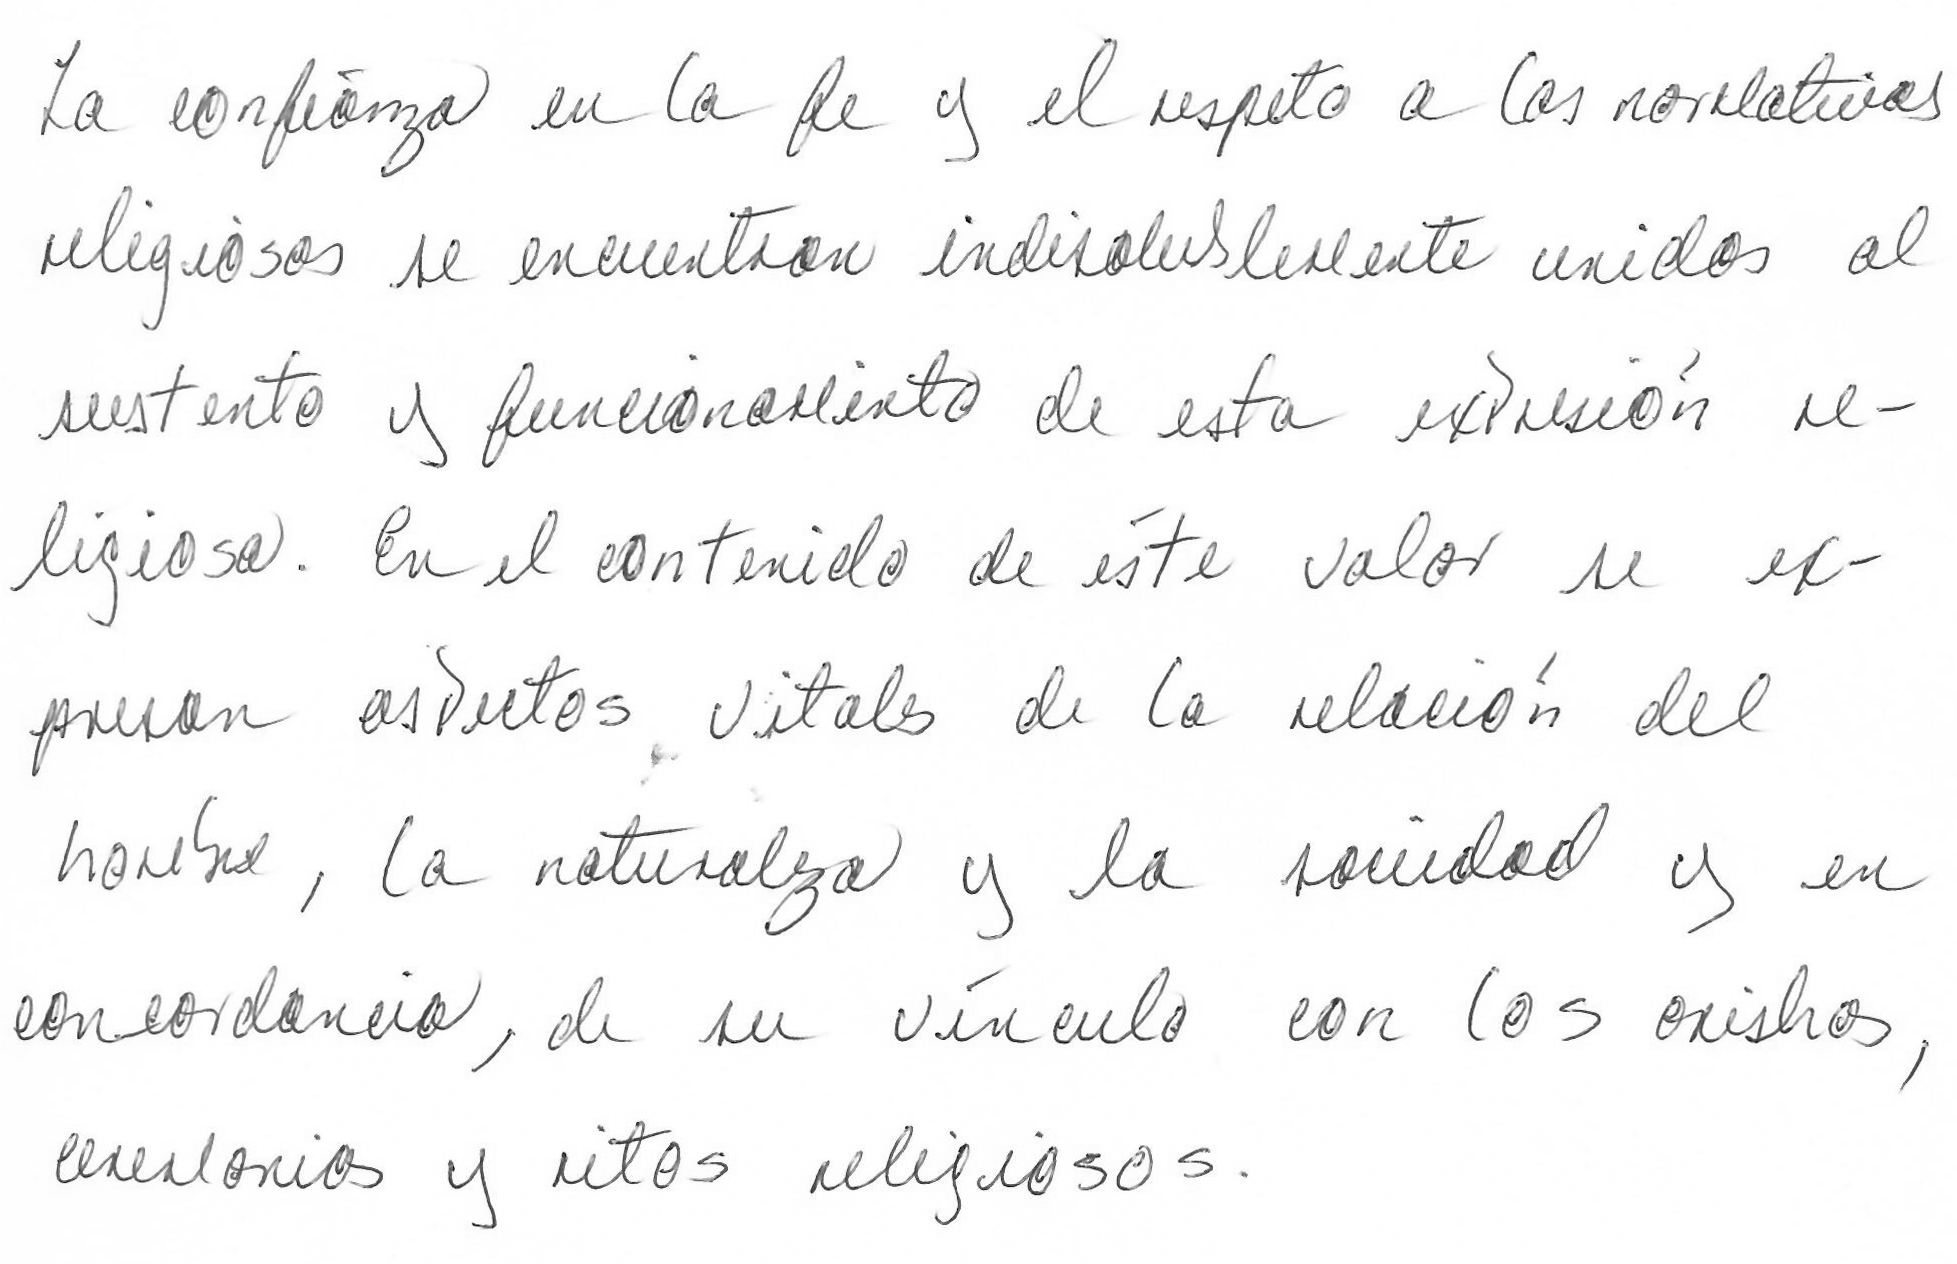 La confianza en la fe y el respeto a las normativas
religiosas se encuentran indisolublemente unidos al
sustento y funcionamiento de esta expresión re-
ligiosa. En el contenido de éste valor se ex-
presan aspectos vitales de la relación del
hombre, la naturalza y la sociedad y en
concordancia, de su vínculo con los orishas,
ceremonias y ritos religiosos.